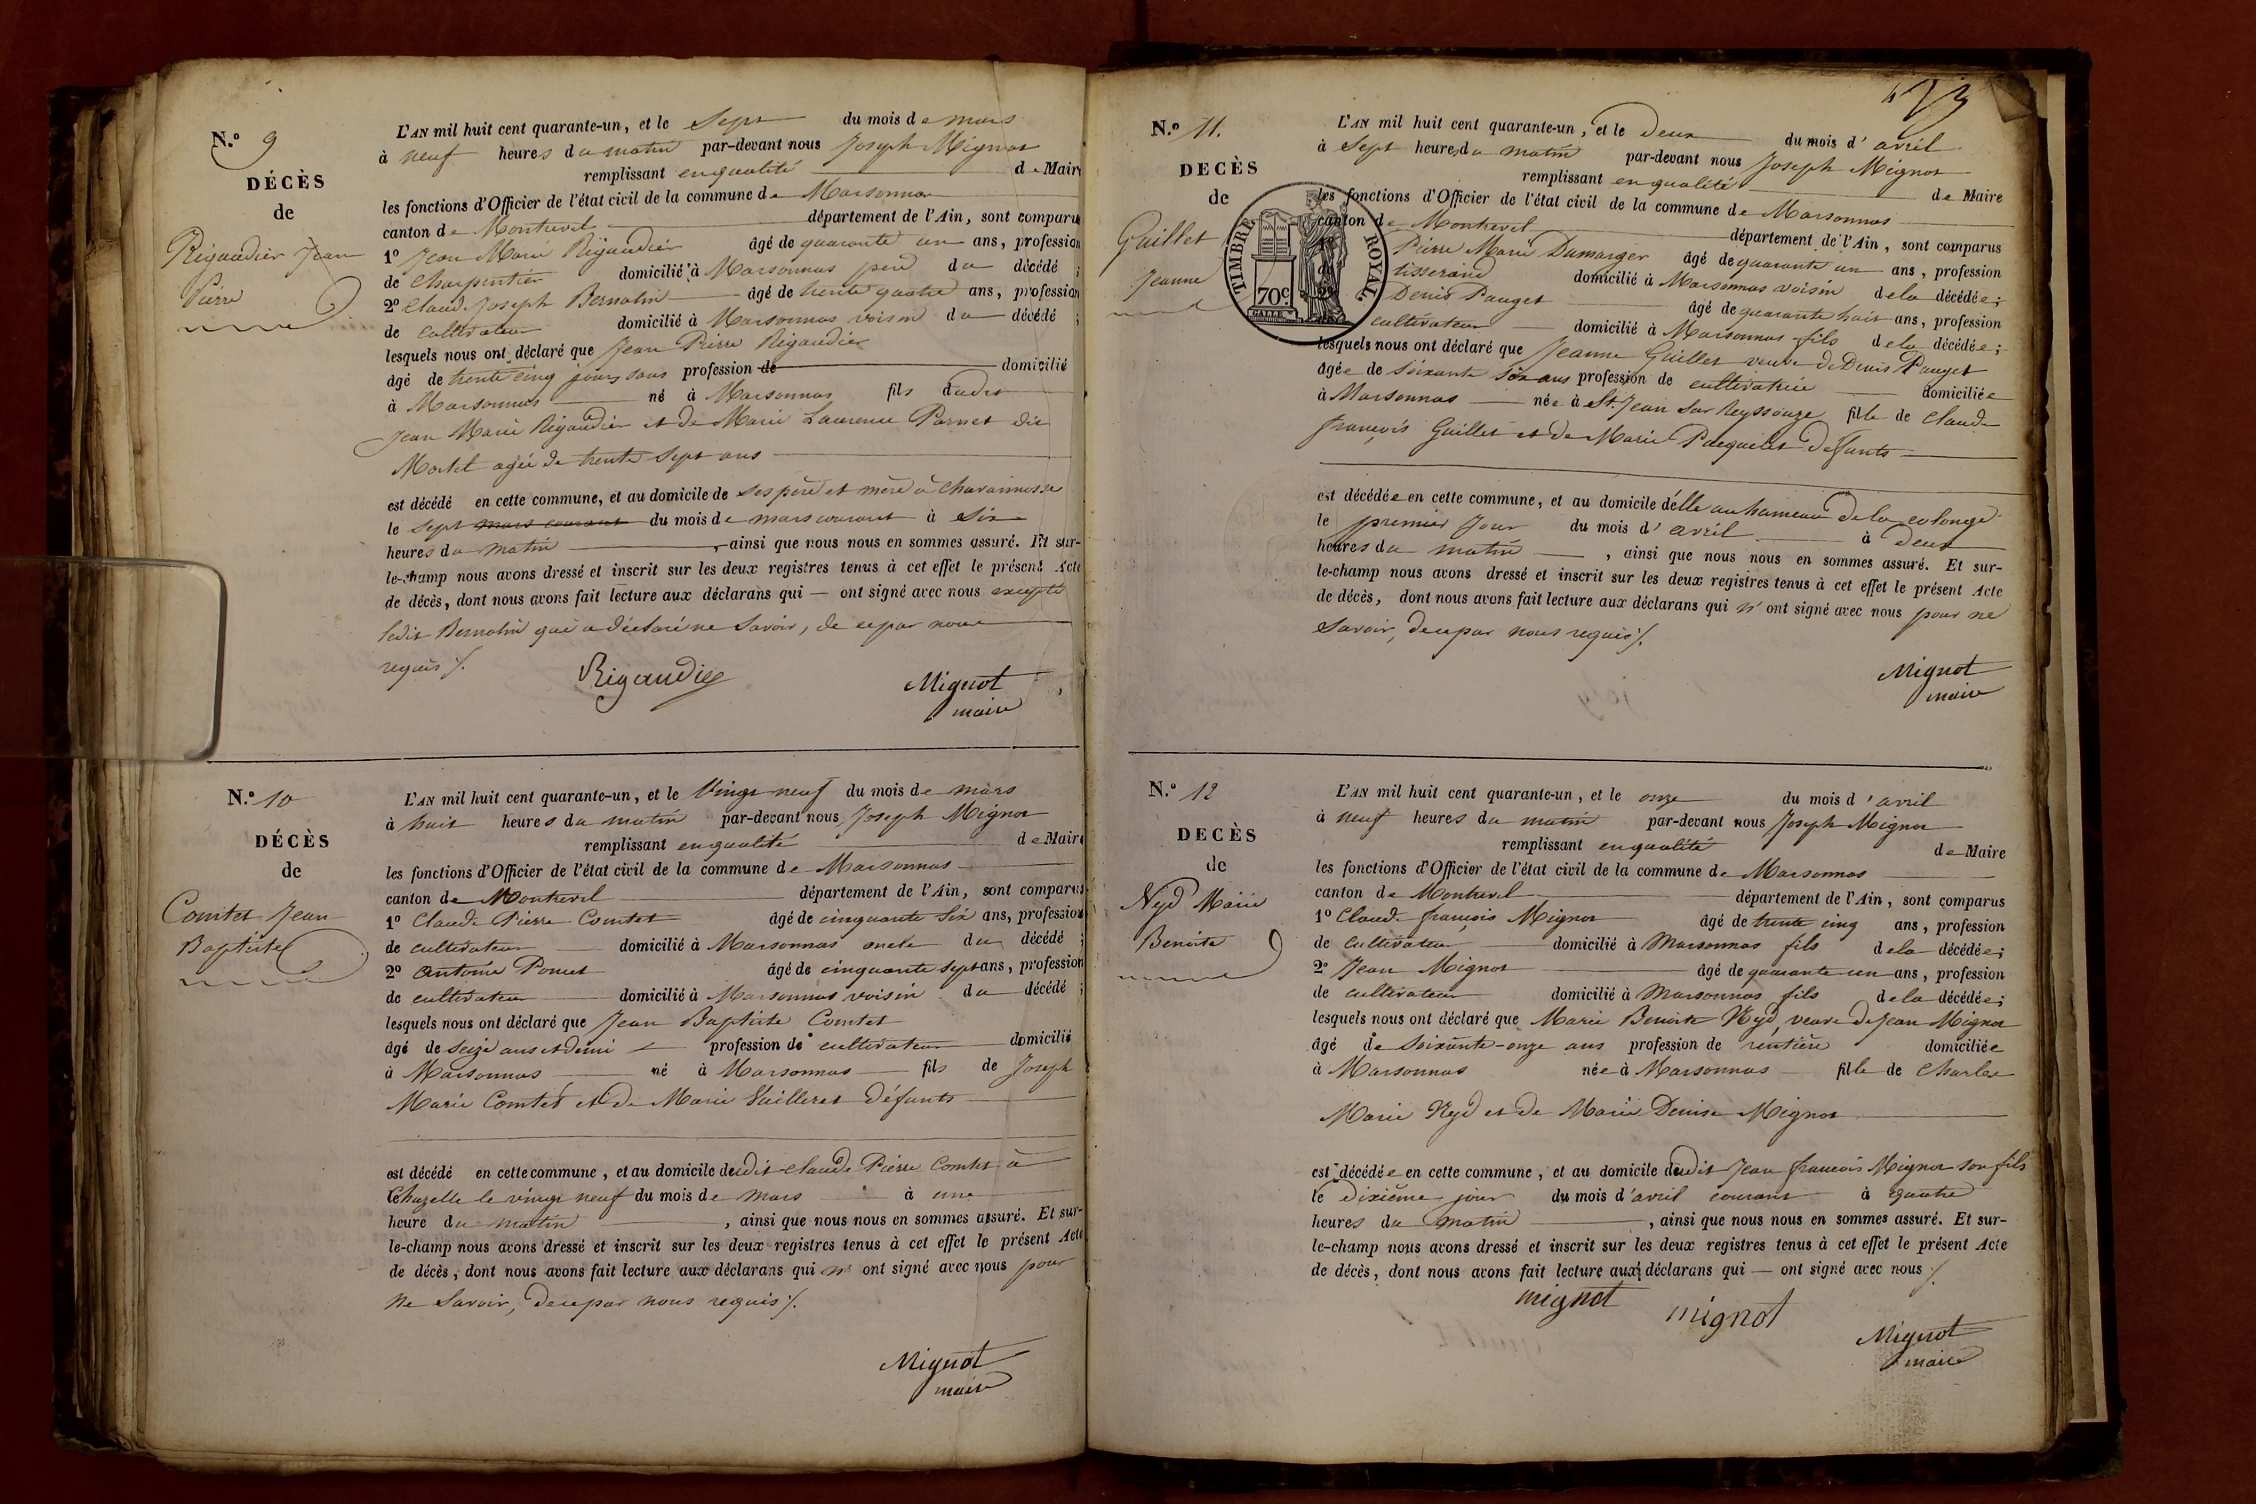 N.º 9
DÉCÈS
de
Rigaudier Jean
Pierre
L'AN mil huit cent quarante-un, et le sept du mois de mars
à neuf heures du matin par-devant nous Joseph Mignot
remplissant en qualité de Maire
les fonctions d'Officier de l'état cicil de la commune de Marsonnas
canton de Montrevel département de l'Ain, sont comparus
1º Jean Marie Rigaudier âgé de quarante un ans, profession
de charpentier domicilié à Marsonnas père du décédé ;
2º Claude Joseph Bernolin âgé de trente quatre ans, profession
de cultivateur domicilié à Marsonnas voisin du décédé ;
lesquels nous ont déclaré que Jean Pierre Rigaudier
âgé de trente cinq jours sans profession de domicilié
à Marsonnas né à Marsonnas fils dudit
Jean Marie Rigaudier et de Marie Laurence Parnet dit
Mortel agée de trente sept ans
est décédé en cette commune, et au domicile de ses père et mère à
le sept mars courant du mois de mars courant à six
heures du matin , ainsi que nous nous en sommes assuré. Et sur-
le-champ nous avons dressé et inscrit sur les deux registres tenus à cet effet le présent Acte
de décès, dont nous avons fait lecture aux déclarans qui — ont signé avec nous excepté
ledit Bernolin qui a déclaré ne savoir, de ce par nous
requis ./.
Rigaudier
Mignot
maire
N.º 10
DÉCÈS
de
Comtet Jean
Baptiste
L'AN mil huit cent quarante-un, et le vingt neuf du mois de mars
à huit heures du matin par-devant nous Joseph Mignot
remplissant en qualité de Maire
les fonctions d'Officier de l'état civil de la commune de Marsonnas
canton de Montrevel département de l'Ain, sont comparus
1º Claude Pierre Comtet âgé de cinquante six ans, profession
de cultivateur domicilié à Marsonnas oncle du décédé ;
2º Antoine Poncet âgé de cinquante sept ans, profession
de cultivateur domicilié à Marsonnas voisin du décédé ;
lesquels nous ont déclaré que Jean Baptiste Comtet
âgé de seize ans et demi profession de cultivateur domicilié
à Marsonnas né à Marsonnas fils de Joseph
Marie Comtet et de Marie défunts
est décédé en cette commune, et au domicile dudit Claude Pierre Comtet à
le vingt neuf du mois de mars à une
heure du matin , ainsi que nous nous en sommes assuré. Et sur-
le-champ nous avons dressé et inscrit sur les deux registres tenus à cet effet le présent Acte
de décès, dont nous avons fait lecture aux déclarans qui n' ont signé avec nous pour
ne savoir, de ce par nous requis ./.
Mignot
maire
N.º 11.
DECÈS
de
Guillet
Jeanne
TIMBRE ROYAL.
70c
L'AN mil huit cent quarante-un, et le deux du mois d'avril
à sept heures du matin par-devant nous Joseph Mignot
remplissant en qualité de Maire
les fonctions d'Officier de l'état civil de la commune de Marsonnas
canton de Montrevel département de l'Ain, sont comparus
Pierre Marie Damarger âgé de quarante un ans, profession
tisserand domicilié à Marsonnas voisin de la décédée ;
Denis Pauget âgé de quarante huit ans, profession
cultivateur domicilié à Marsonnas fils de la décédée ;
lesquels nous ont déclaré que Jeanne Guillet veuve de Denis Pauget
âgée de soixante six ans profession de cultivatrice domiciliée
à Marsonnas née à St. Jean sur Reyssouze fille de Claude
François Guillet et de Marie défunts
est décédée en cette commune, et au domicile d'elle au hameau de la colonge
le premier jour du mois d'avril à deux
heures du matin , ainsi que nous nous en sommes assuré. Et sur-
le-champ nous avons dressé et inscrit sur les deux registres tenus à cet effet le présent Acte
de décès, dont nous avons fait lecture aux déclarans qui n' ont signé avec nous pour ne
savoir, de ce par nous requis ./.
Mignot
maire
N.º 12
DECÈS
de
Neyd Marie
Benoite
L'AN mil huit cent quarante-un, et le onze du mois d'avril
à neuf heures du matin par-devant nous Joseph Mignot
remplissant en qualité de Maire
les fonctions d'Officier de l'état civil de la commune de Marsonnas
canton de Montrevel département de l'Ain, sont comparus
1º Claude françois Mignot âgé de trente cinq ans, profession
de cultivateur domicilié à Marsonnas fils de la décédée ;
2º Jean Mignot âgé de quarante un ans, profession
de cultivateur domicilié à Marsonnas fils de la décédée ;
lesquels nous ont déclaré que Marie Benoite Neyd, veuve de Jean Mignot
âgé de soixante-onze ans profession de rentière domiciliée
à Marsonnas née à Marsonnas fille de Charles
Marie Neyd et de Marie Denise Mignot
est décédée en cette commune, et au domicile dudit Jean françois Mignot son fils
le dixième jour du mois d'avril courant à quatre
heures du matin , ainsi que nous nous en sommes assuré. Et sur-
le-champ nous avons dressé et inscrit sur les deux registres tenus à cet effet le présent Acte
de décès, dont nous avons fait lecture aux déclarans qui — ont signé avec nous ./.
mignot
mignot
Mignot
maire